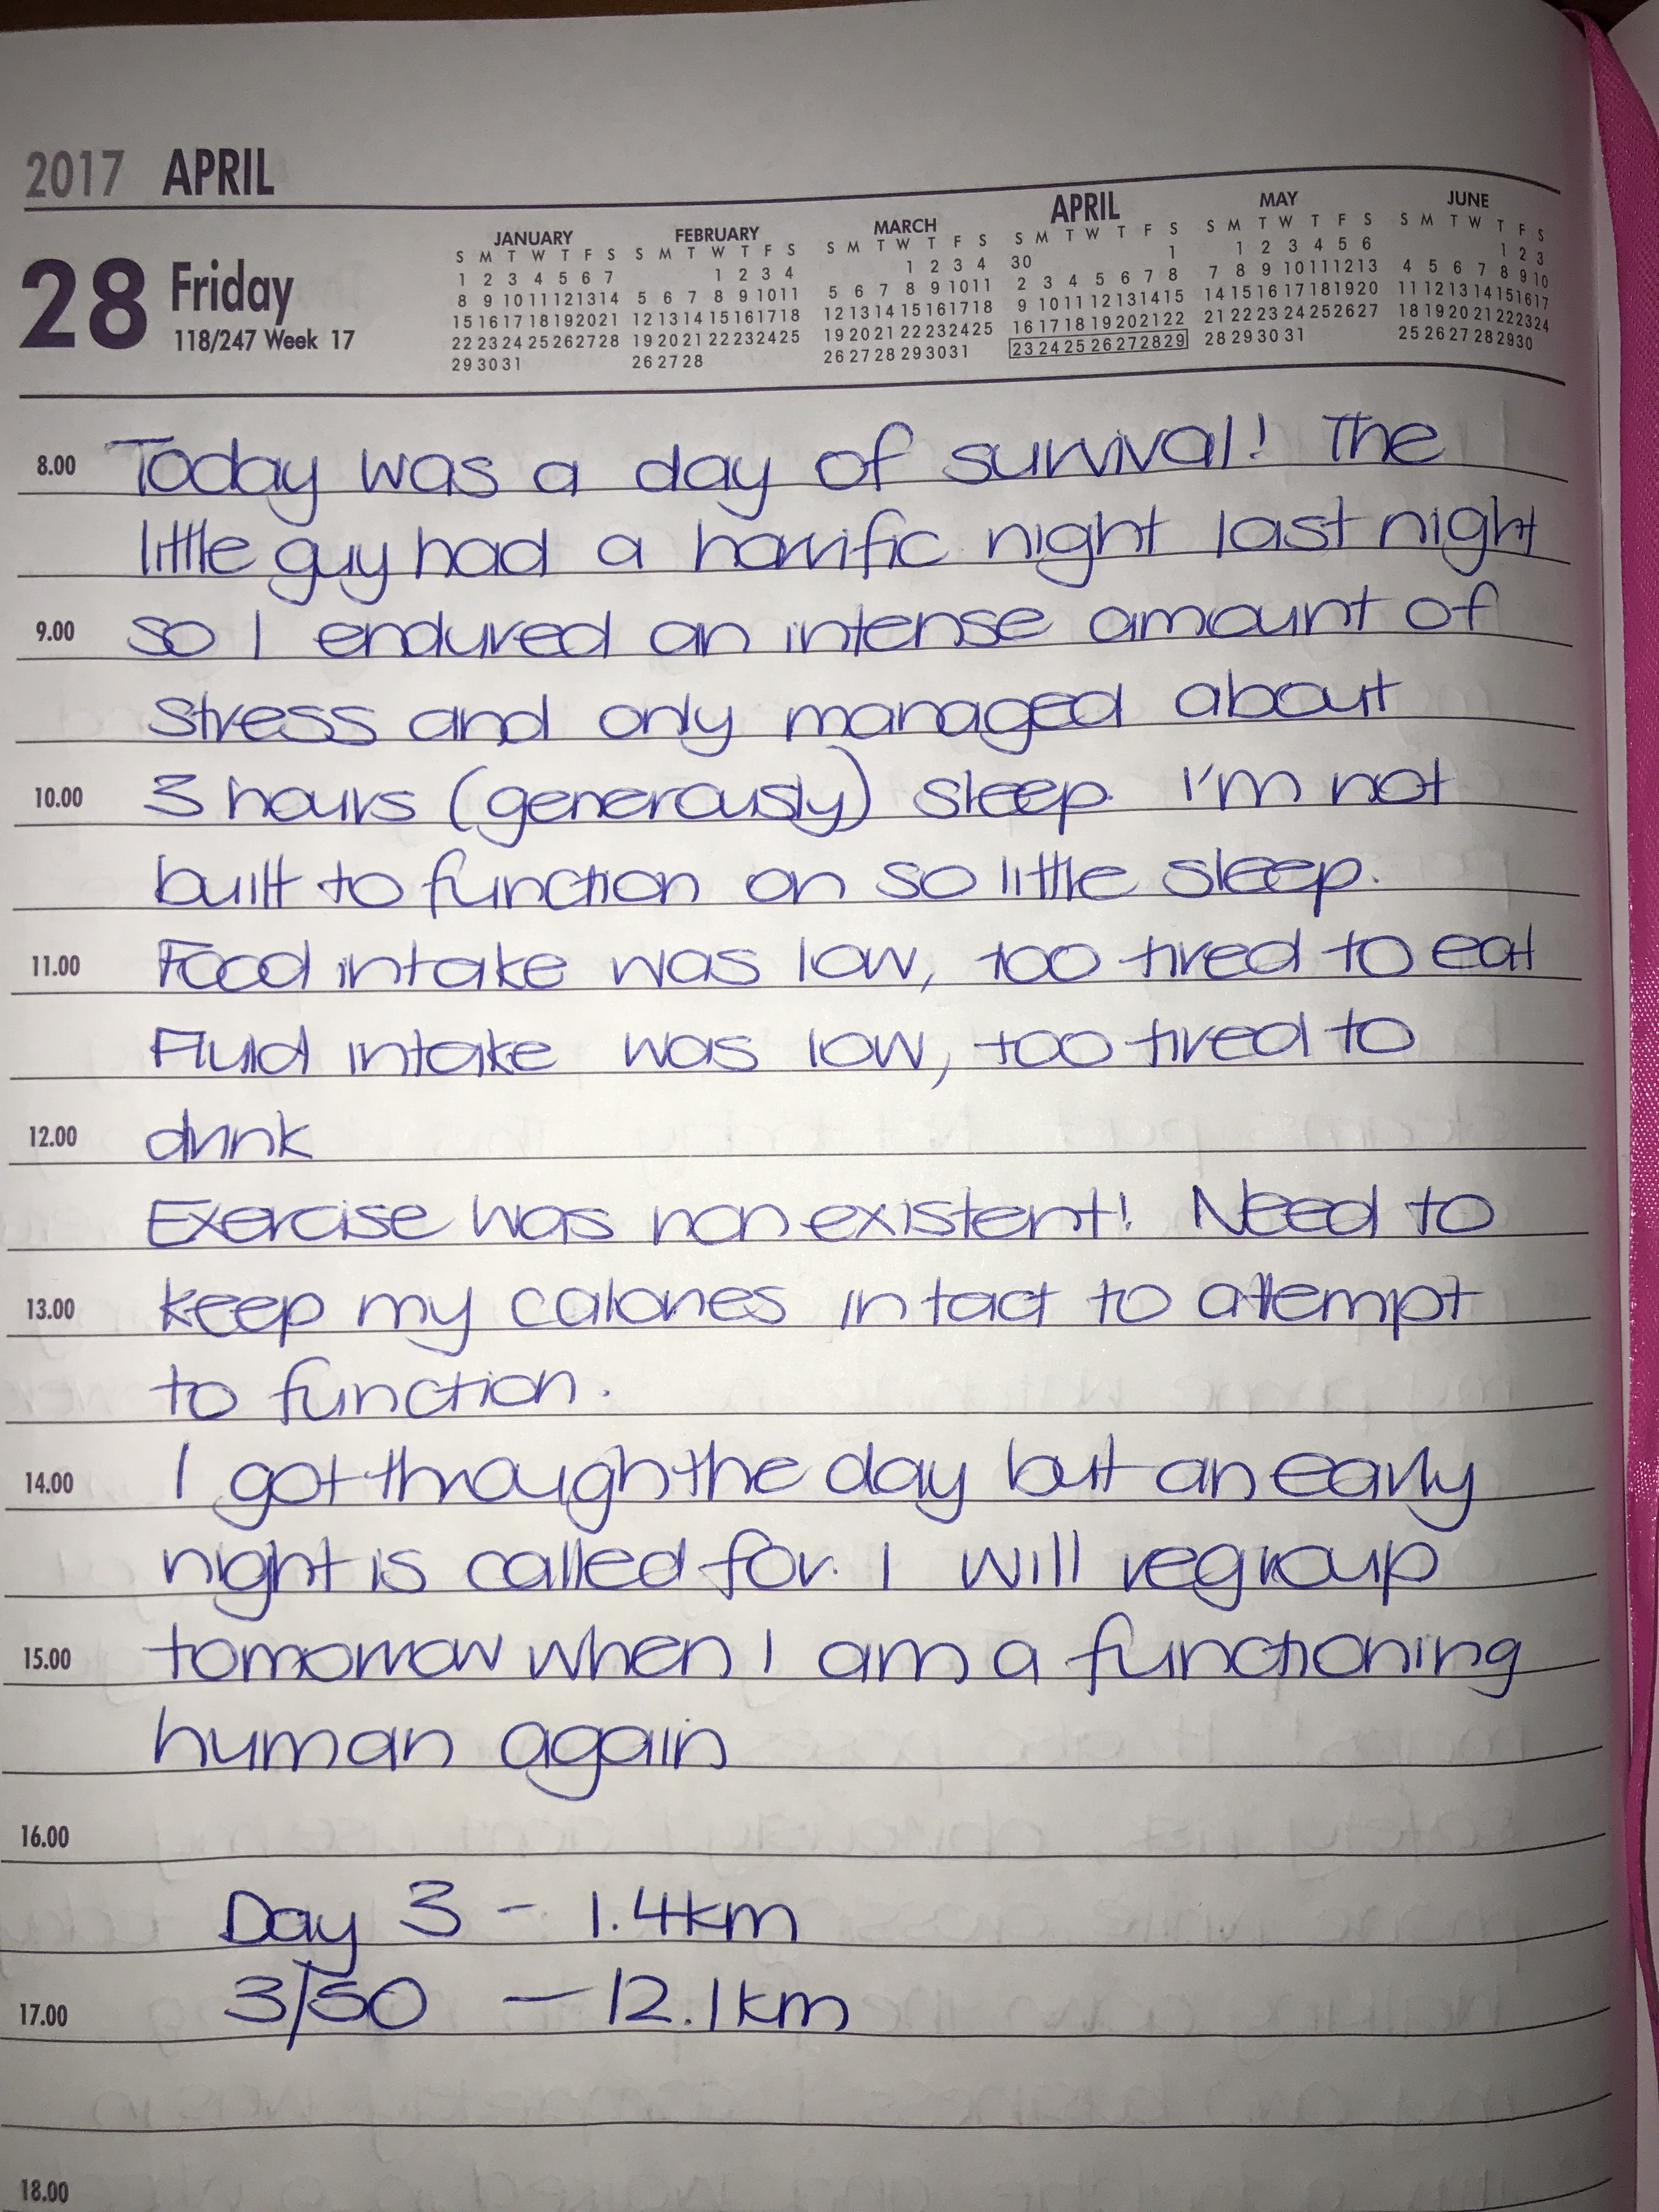 2017 APRIL
28 Friday
118/247 Week 17
JANUARY
S M T W T F S
1 2 3 4 5 6 7
8 9 10 11 12 13 14
15 16 17 18 19 20 21
22 23 24 25 26 27 28
29 30 31
FEBRUARY
S M T W T F S
1 2 3 4
5 6 7 8 9 10 11
12 13 14 15 16 17 18
19 20 21 22 23 24 25
26 27 28
MARCH
S M T W T F S
1 2 3 4
5 6 7 8 9 10 11
12 13 14 15 16 17 18
19 20 21 22 23 24 25
26 27 28 29 30 31
APRIL
S M T W T F S
30 1
2 3 4 5 6 7 8
9 10 11 12 13 14 15
16 17 18 19 20 21 22
23 24 25 26 27 28 29
MAY
S M T W T F S
1 2 3 4 5 6
7 8 9 10 11 12 13
14 15 16 17 18 19 20
21 22 23 24 25 26 27
28 29 30 31
JUNE
S M T W T F S
1 2 3
4 5 6 7 8 9 10
11 12 13 14 15 16 17
18 19 20 21 22 23 24
25 26 27 28 29 30
8.00 Today was a day of survival! The
little guy had a horrific night last night
9.00 so I endured an intense amount of
stress and only managed about
10.00 3 hours (generously) sleep. I'm not
built to function on so little sleep.
11.00 Food intake was low, too tired to eat
Fluid intake was low, too tired to
12.00 drink
Exercise was non existent! Need to
13.00 keep my calories in tact to attempt
to function.
14.00 I got through the day but an early
night is called for. I will regroup
15.00 tomorrow when I am a functioning
human again
16.00
Day 3 - 1.4km
17.00 3/50 - 12.1km
18.00